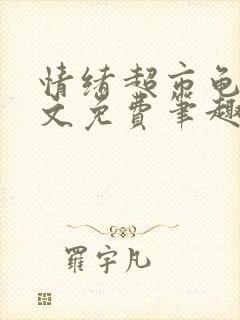 情绪超市龟
文免费笔趣
羅宇凡